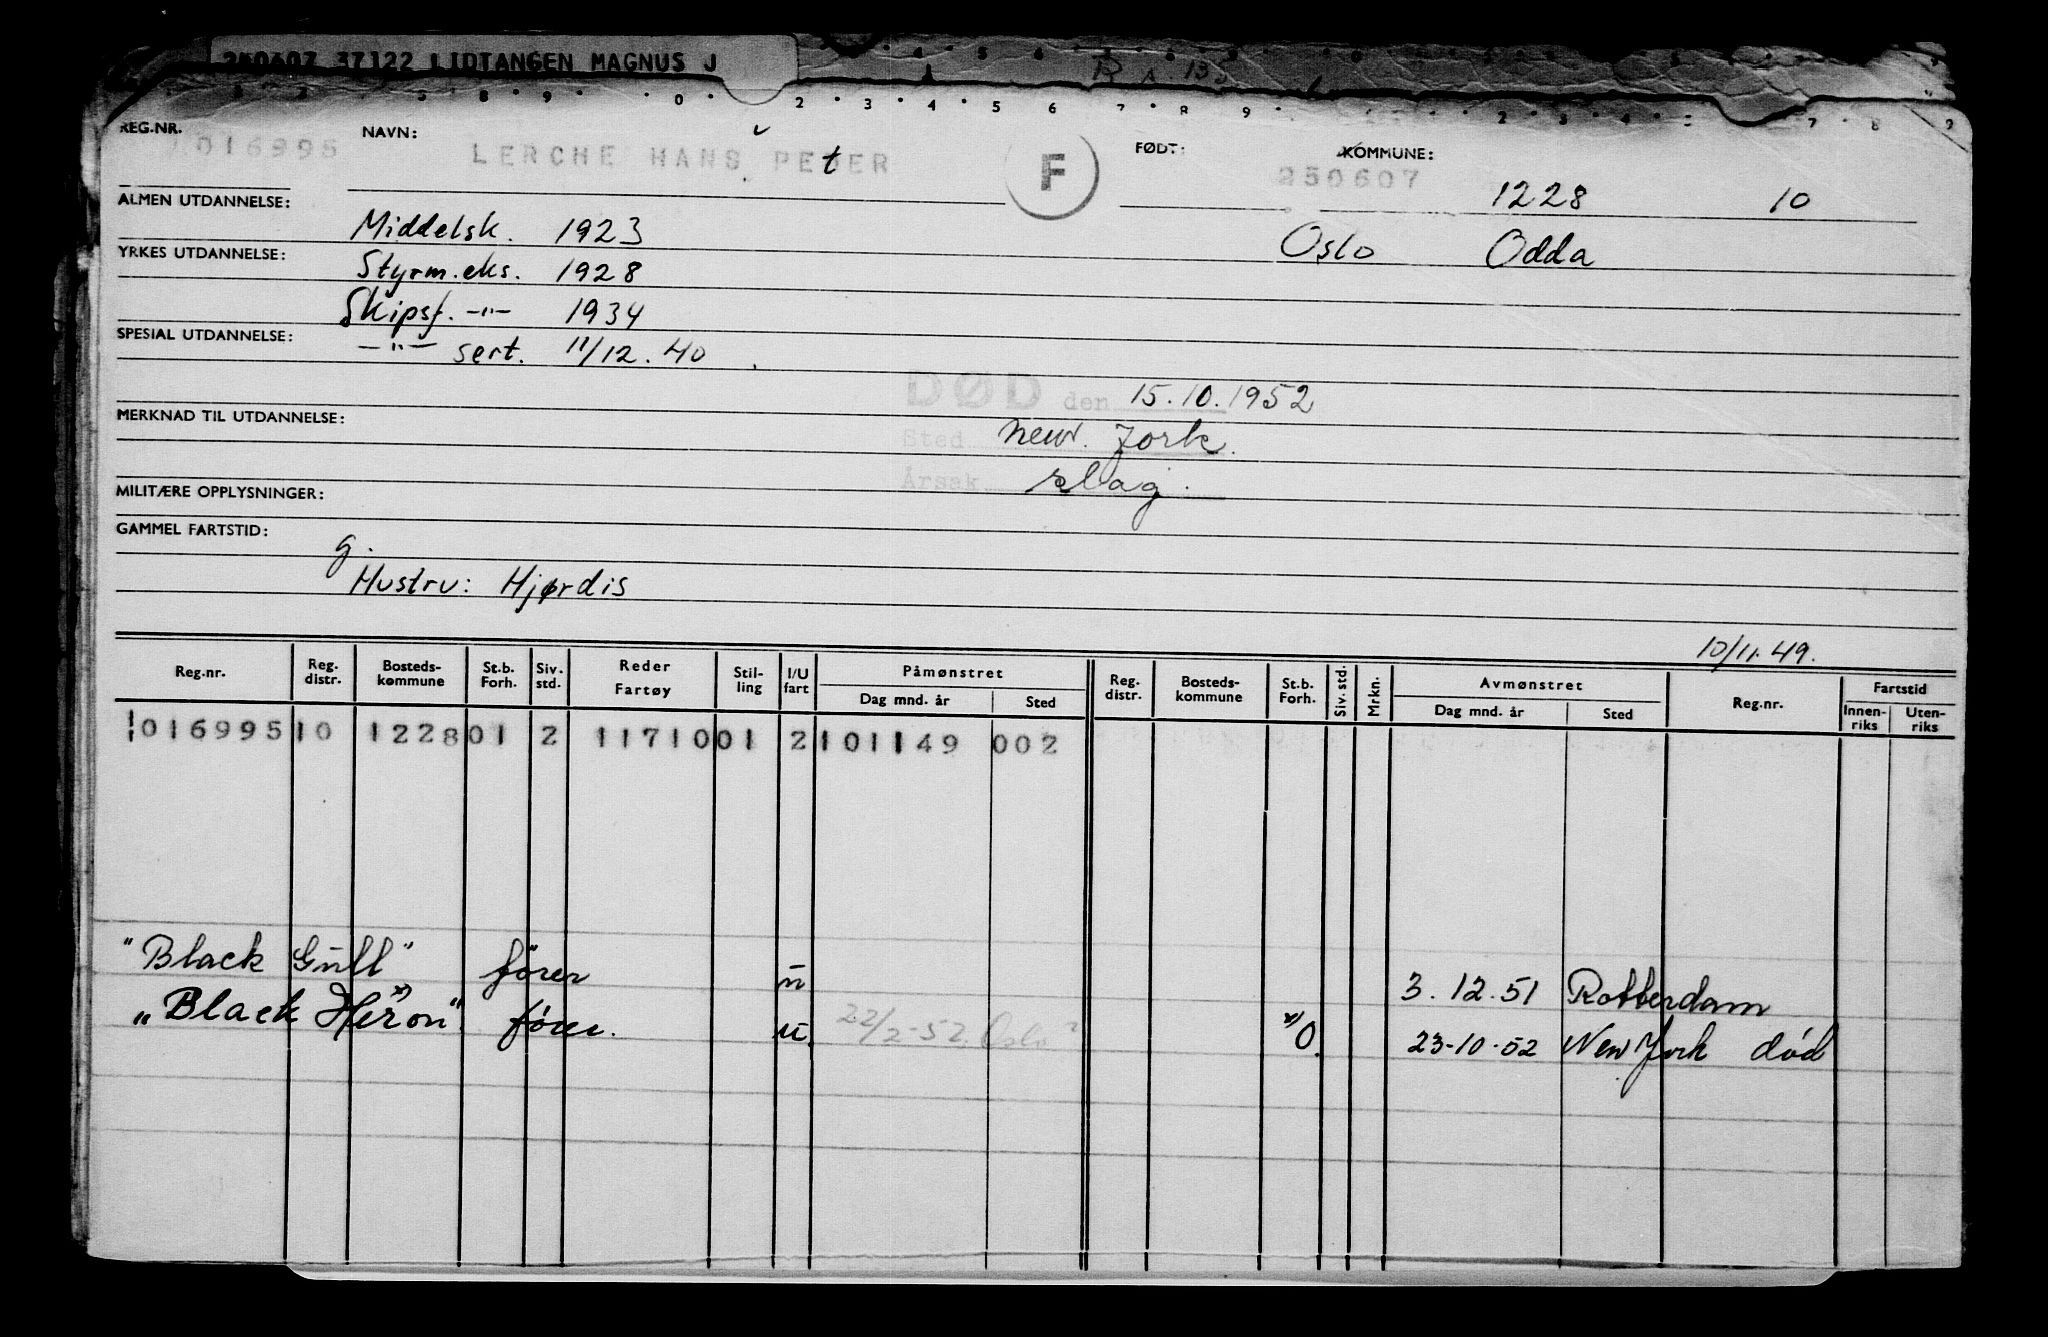 250607 37122 LIDTANGEN MAGNUS J
REG.NR. NAVN: FØDT: KOMMUNE:
016995 LERCHE HANS PETER F 250607 1228 10
ALMEN UTDANNELSE: Middelsk. 1923 Oslo Odda
YRKES UTDANNELSE: Styrm.eks. 1928
Skipsf. -"- 1934
SPESIAL UTDANNELSE: -"- sert. 11/12.40
DØD den 15.10.1952
MERKNAD TIL UTDANNELSE: Sted New. York.
Årsak slag.
MILITÆRE OPPLYSNINGER:
GAMMEL FARTSTID:
g.
Hustru: Hjørdis
10/11.49.
Reg.nr. Reg. distr. Bosteds- kommune St.b. Forh. Siv. std. Reder Fartøy Stil- ling I/U fart Påmønstret Dag mnd. år Sted Reg. distr. Bosteds- kommune St.b. Forh. Siv. std. Mrkn. Avmønstret Dag mnd. år Sted Reg.nr. Fartstid Innen- riks Uten- riks
016995 10 1228 01 2 11710 01 2 101149 002
"Black Gull" fører u 3.12.51 Rotterdam
"Black Heron" x) fører. u. 22/2-52 Oslo x) O. 23-10-52 New York død